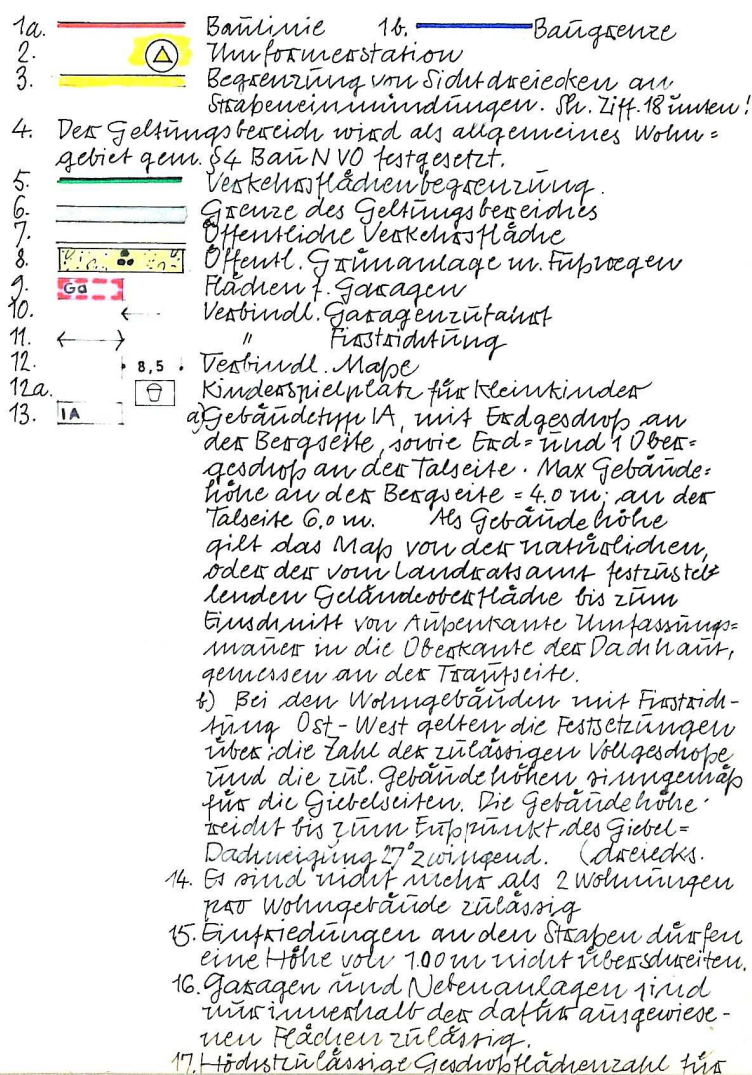 1a. Baulinie 1b. Baugrenze
2. Umformerstation
3. Begrenzung von Sichtdreiecken an
Straßeneinmündungen. Sh. Ziff. 18 unten!
4. Der Geltungsbereich wird als allgemeines Wohn=
gebiet gem. §4 BauNVO festgesetzt.
5. Verkehrsflächenbegrenzung.
6. Grenze des Geltungsbereiches
7. Öffentliche Verkehrsfläche
8. Öffentl. Grünanlage m. Fußwegen
9. Ga Flächen f. Garagen
10. Verbindl. Garagenzufahrt
11. " Firstrichtung
12. 8,5 Verbindl. Maße
12a. Kinderspielplatz für Kleinkinder
13. IA a) Gebäudetyp IA, mit Erdgeschoß an
der Bergseite, sowie Erd= und 1 Ober=
geschoß an der Talseite. Max Gebäude=
höhe an der Bergseite = 4.0 m; an der
Talseite 6,0 m. Als Gebäudehöhe
gilt das Maß von der natürlichen,
oder der vom Landratsamt festzustel=
lenden Geländeoberfläche bis zum
Einschnitt von Außenkante Umfassungs=
mauer in die Oberkante der Dachhaut,
gemessen an der Traufseite.
b) Bei den Wohngebäuden mit Firstrich-
tung Ost-West gelten die Festsetzungen
über die Zahl der zulässigen Vollgeschoße
und die zul. Gebäudehöhen sinngemäß
für die Giebelseiten. Die Gebäudehöhe
reicht bis zum Fußpunkt des Giebel=
Dachneigung 27° zwingend. (dreiecks.
14. Es sind nicht mehr als 2 Wohnungen
pro Wohngebäude zulässig
15. Einfriedungen an den Straßen dürfen
eine Höhe von 1.00 m nicht überschreiten.
16. Garagen und Nebenanlagen sind
nur innerhalb der dafür ausgewiese-
nen Flächen zulässig.
17. Höchstzulässige Geschoßflächenzahl für